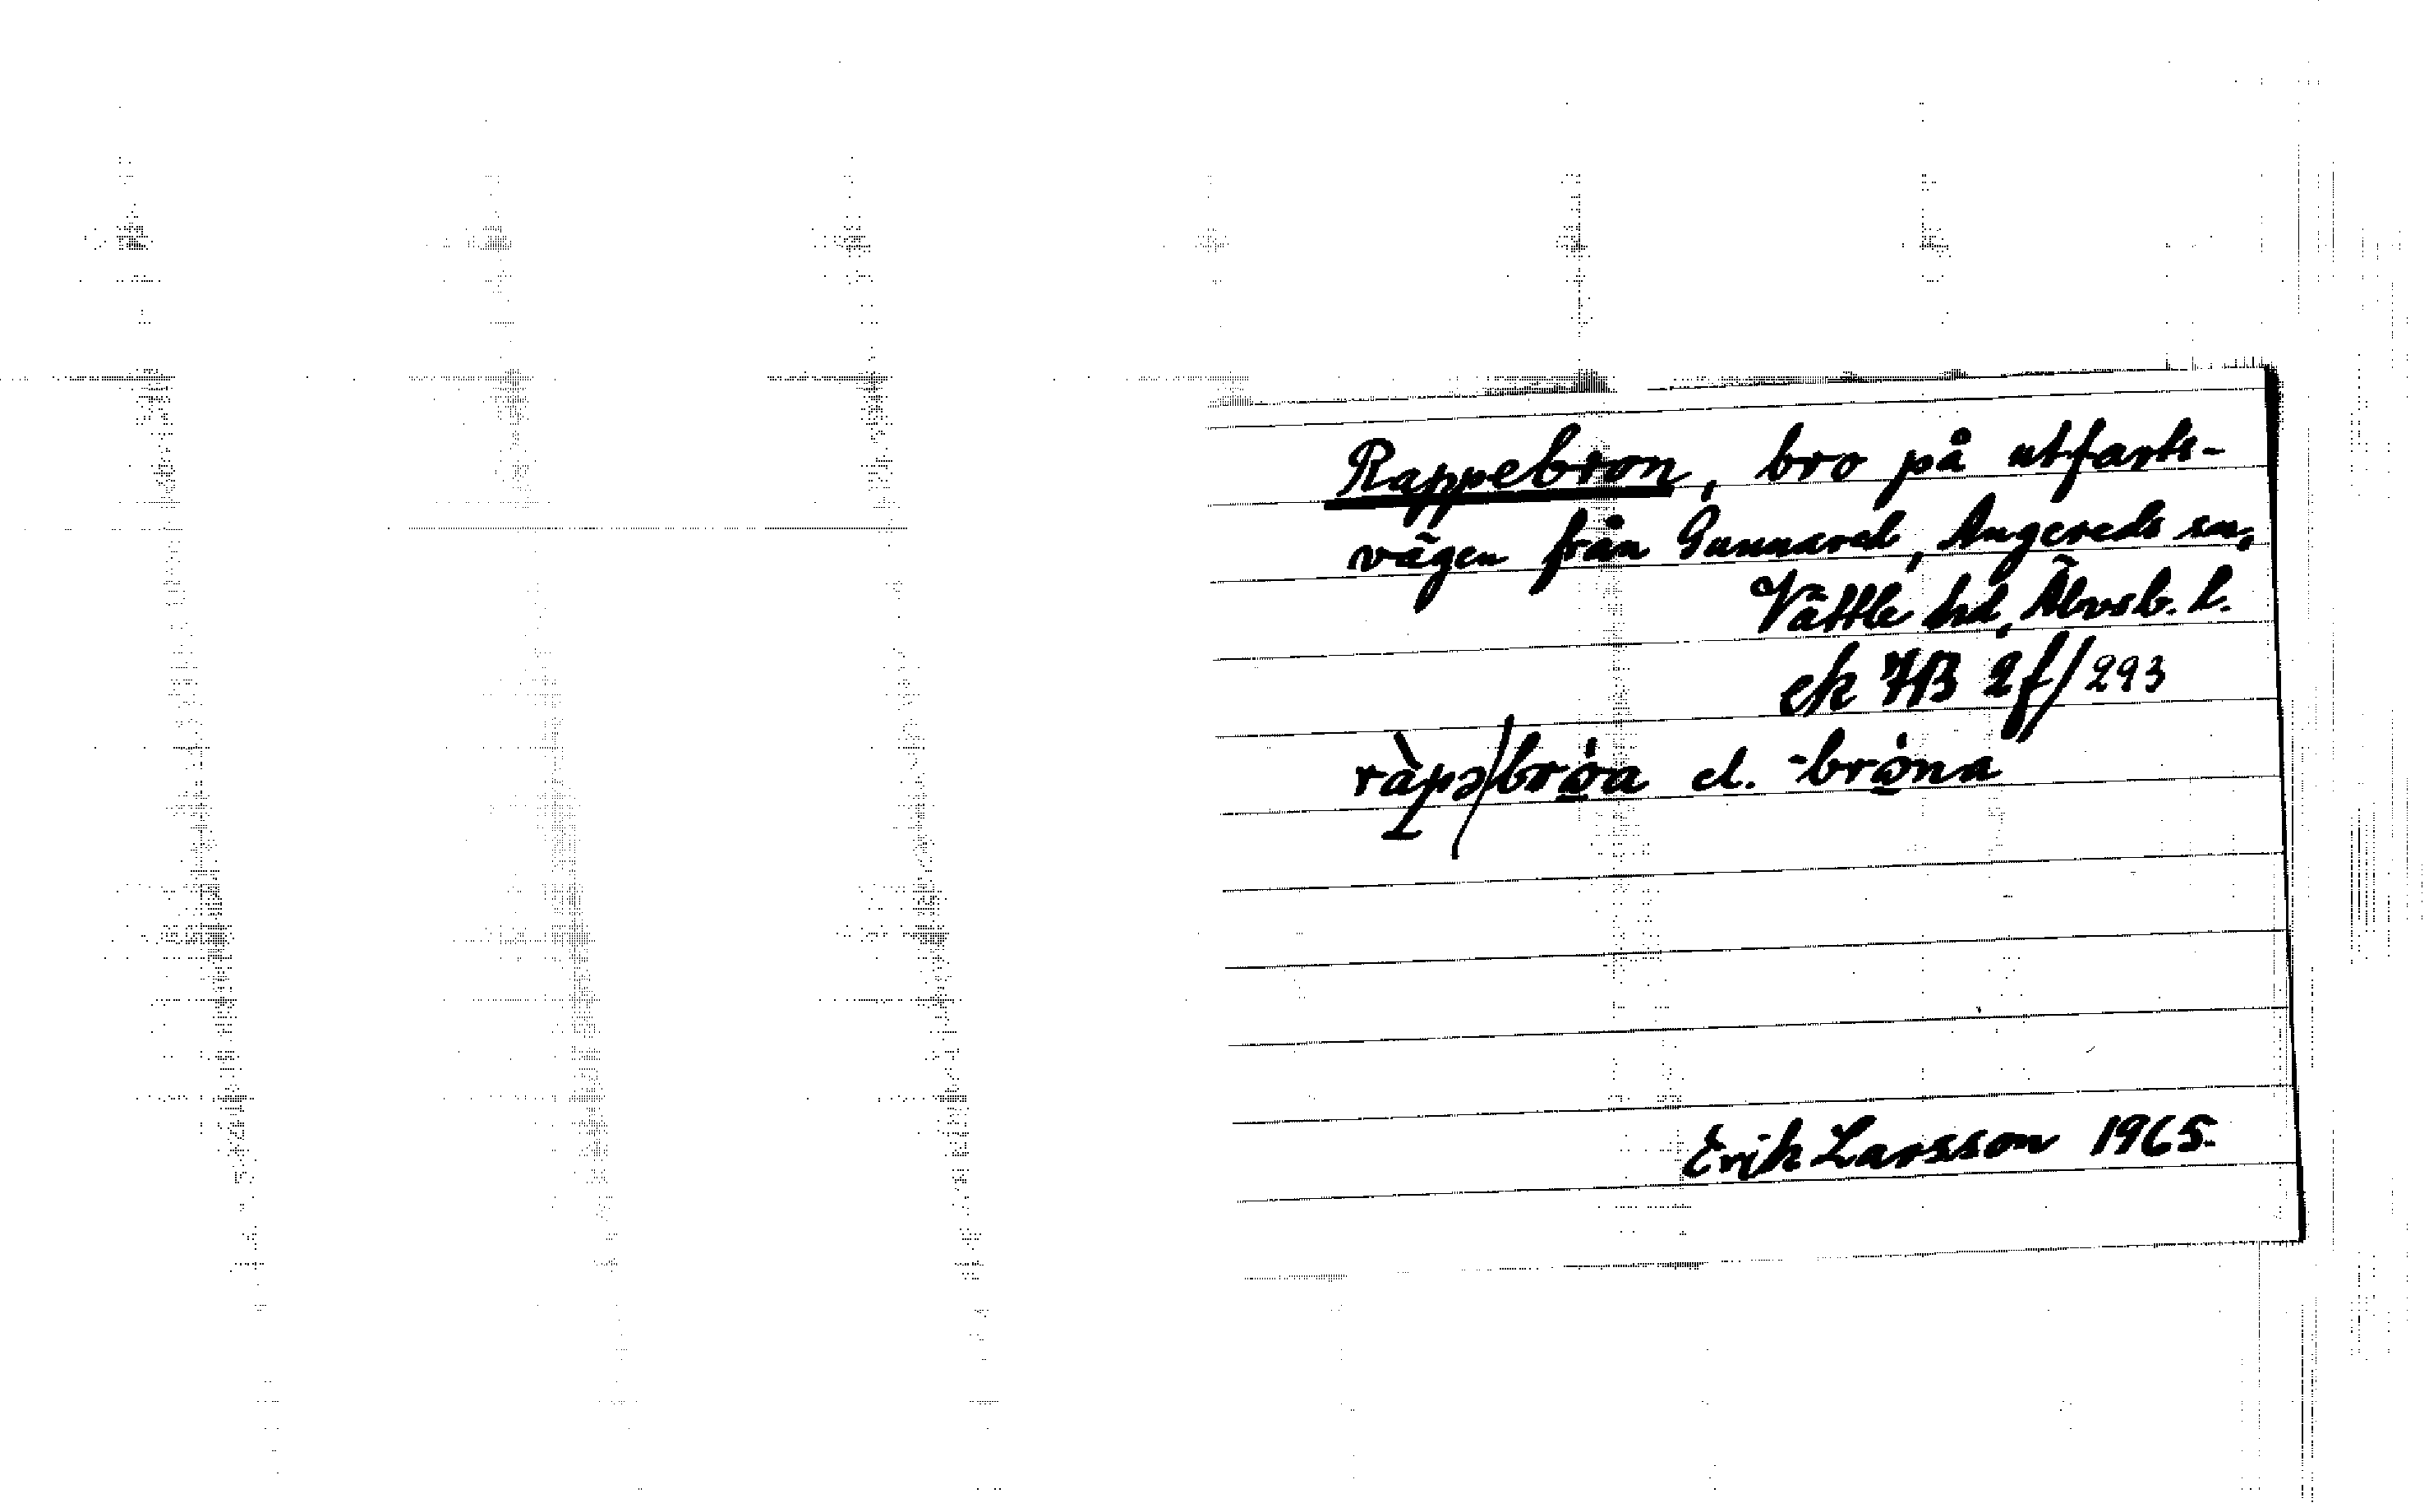 Rappebron, bro på utfarts-
vägen från Gunnared, Angereds sn,
Vättle hd, Älvsb. l.
ek 7B 2f/293
ràpə/brȯa el. -brȯna
Erik Larsson 1965.